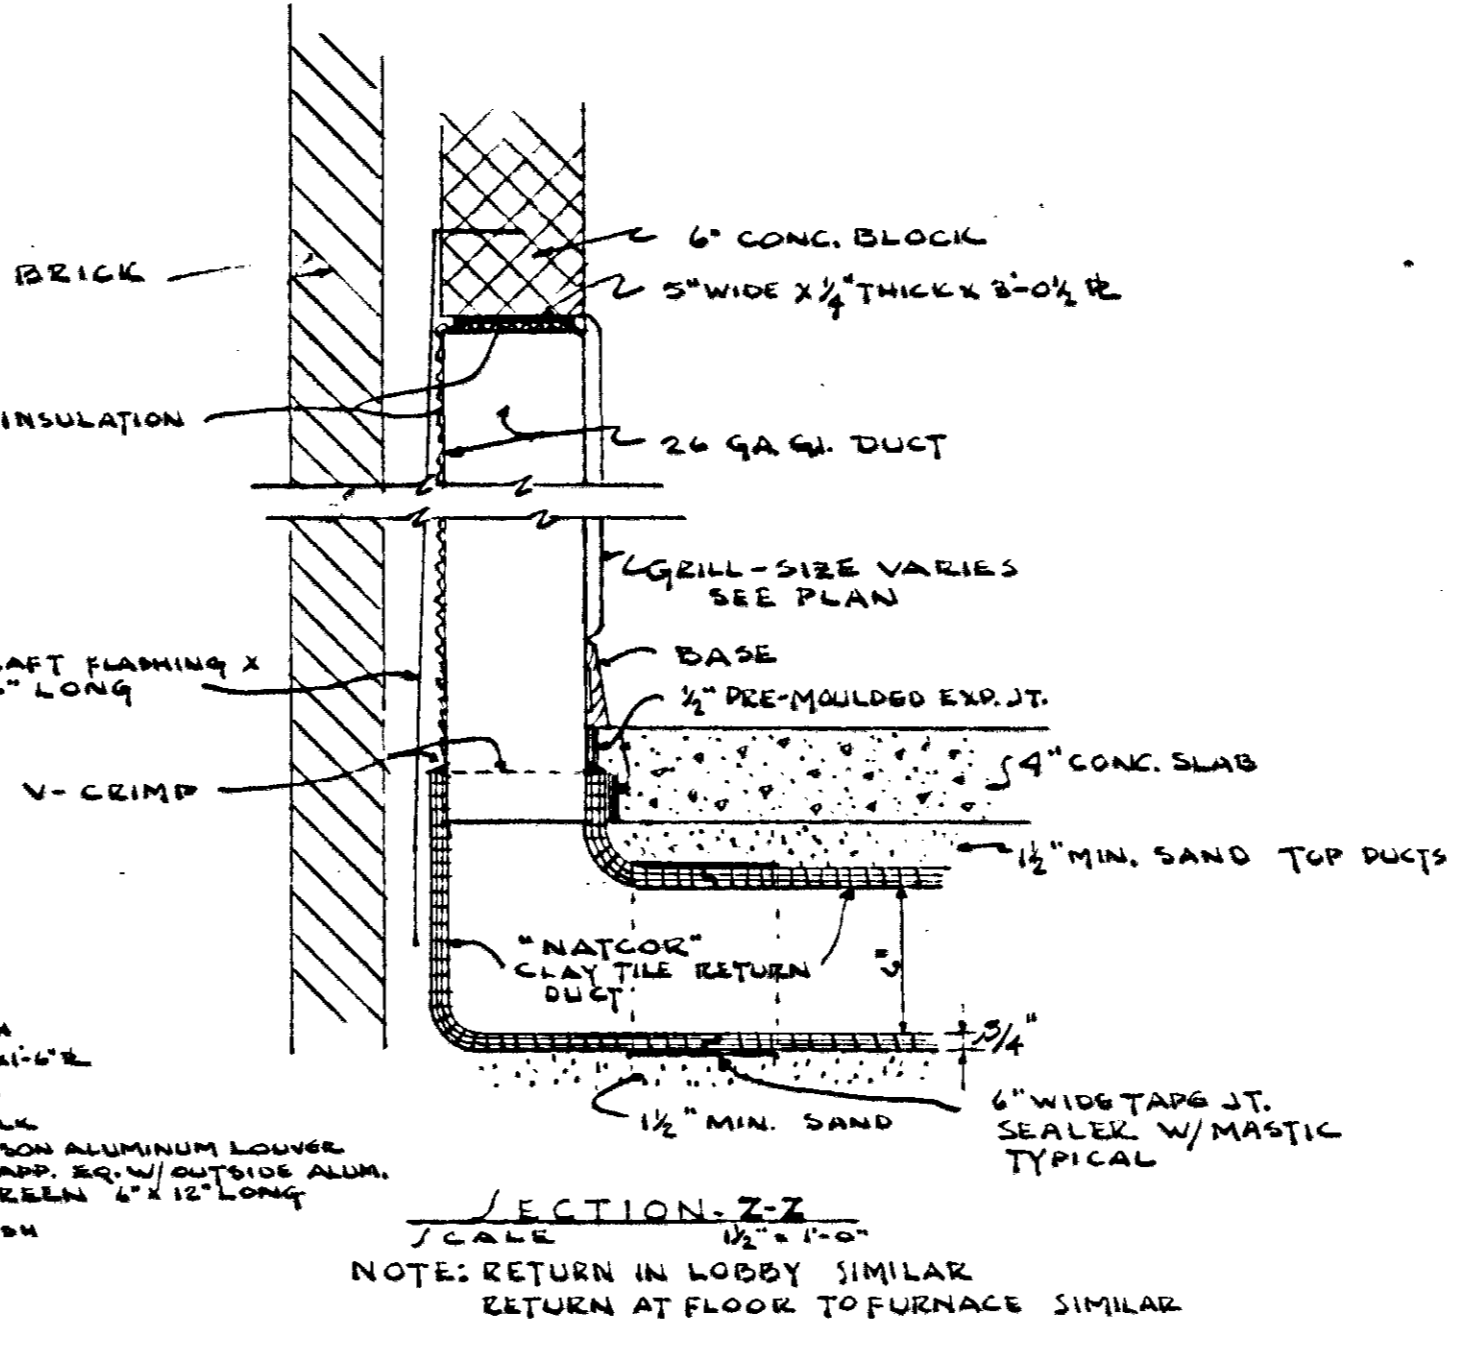 6" CONC. BLOCK
BRICK
5" WIDE X 1/4" THICK X 3'-0 1/2 PL
INSULATION
26 GA. G.I. DUCT
GRILL - SIZE VARIES
SEE PLAN
BASE
AFT FLASHING X
" LONG
1/2" PRE-MOULDED EXP. JT.
4" CONC. SLAB
V-CRIMP
1 1/2" MIN. SAND TOP DUCTS
"NATCOR"
CLAY TILE RETURN
DUCT
3/4"
X1'-6" PL
6" WIDE TAPE JT.
SEALER W/ MASTIC
TYPICAL
1 1/2" MIN. SAND
SON ALUMINUM LOUVER
APP. EQ. W/ OUTSIDE ALUM.
REEN 6" X 12" LONG
SECTION - Z-Z
SCALE 1 1/2" = 1'-0"
NOTE: RETURN IN LOBBY SIMILAR
RETURN AT FLOOR TO FURNACE SIMILAR